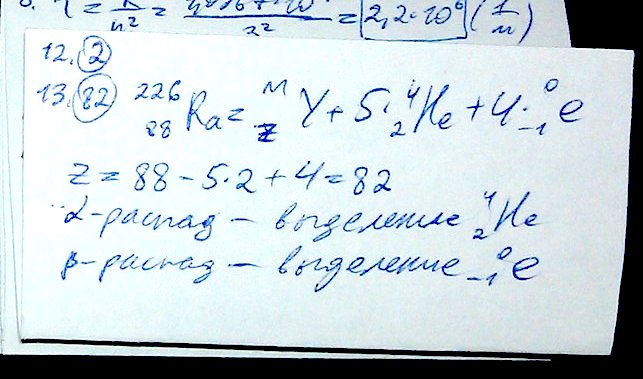 = 2,2·10⁶ (1/м)
12. 2
13. 82 ²²⁶₈₈Ra = ᴹ_Z Y + 5·⁴₂He + 4·⁰₋₁e
Z = 88 - 5·2 + 4 = 82
α-распад — выделение ⁴₂He
β-распад — выделение ⁰₋₁e